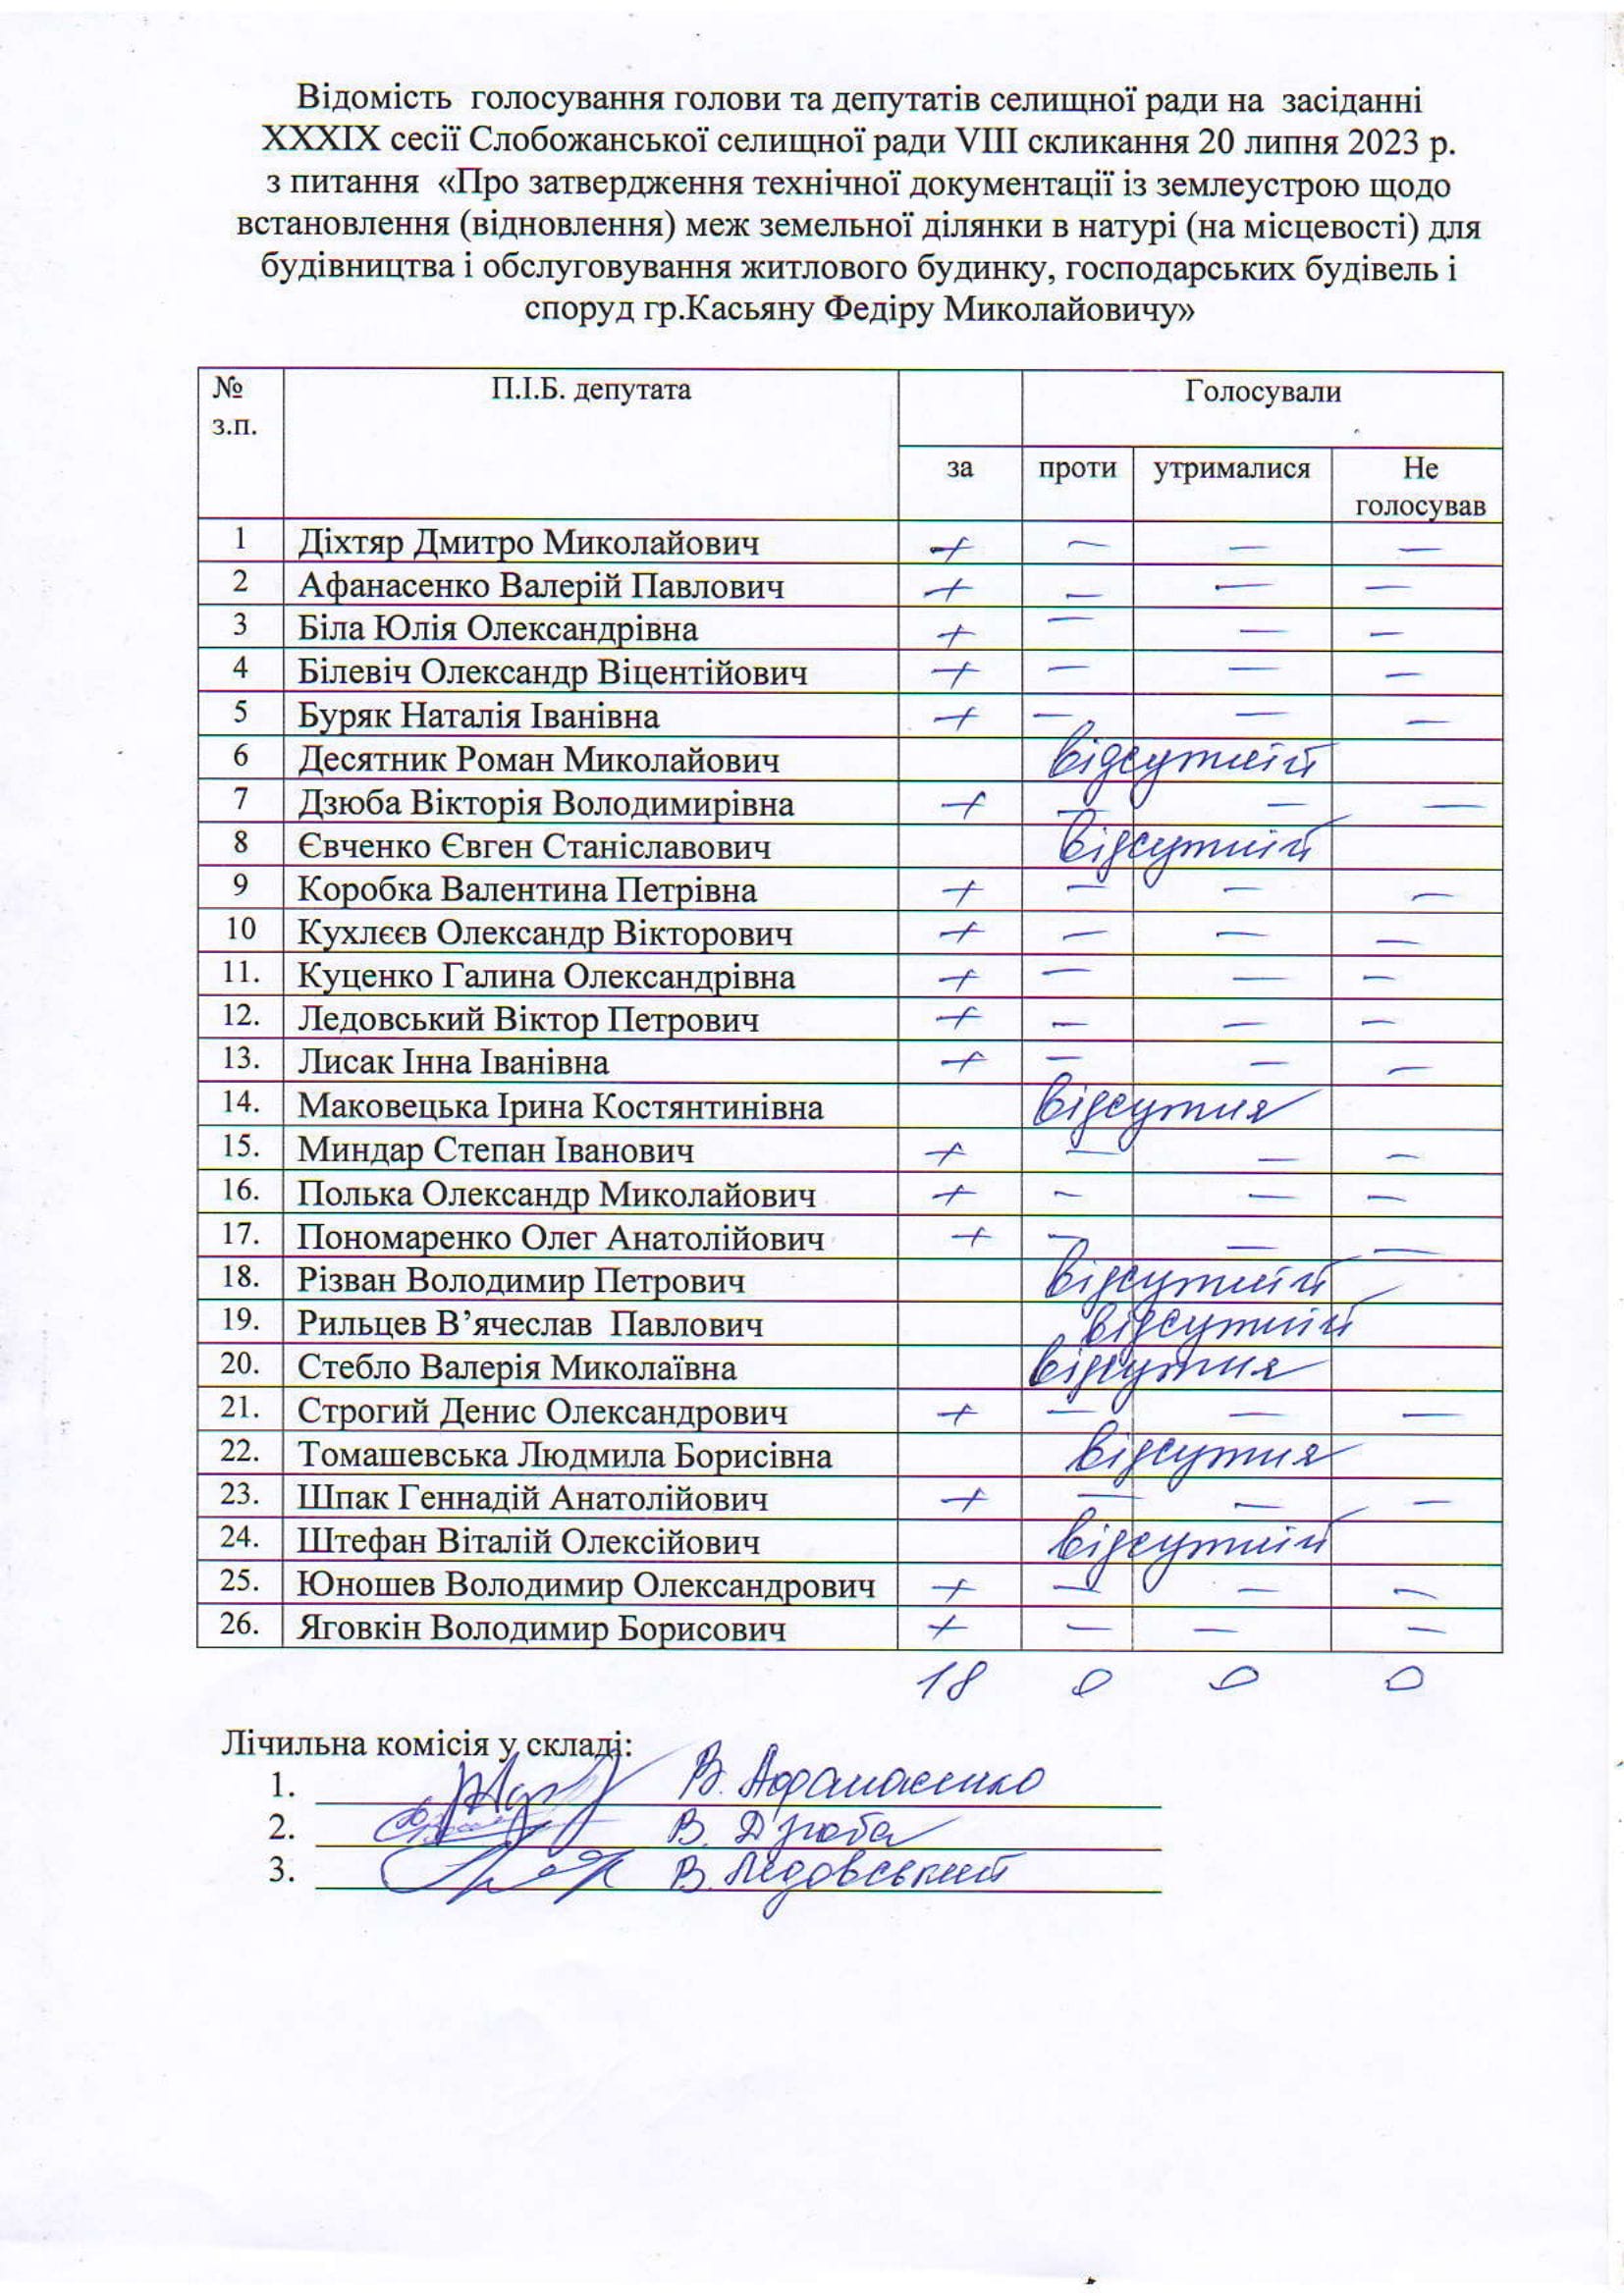 Відомість голосування голови та депутатів селищної ради на засіданні
XXXIX сесії Слобожанської селищної ради VIII скликання 20 липня 2023 р.
з питання «Про затвердження технічної документації із землеустрою щодо
встановлення (відновлення) меж земельної ділянки в натурі (на місцевості) для
будівництва і обслуговування житлового будинку, господарських будівель і
споруд гр.Касьяну Федіру Миколайовичу»
№ з.п. П.І.Б. депутата Голосували
за проти утрималися Не голосував
1 Діхтяр Дмитро Миколайович + – – –
2 Афанасенко Валерій Павлович + – – –
3 Біла Юлія Олександрівна + – – –
4 Білевіч Олександр Віцентійович + – – –
5 Буряк Наталія Іванівна + – – –
6 Десятник Роман Миколайович відсутній
7 Дзюба Вікторія Володимирівна + – – –
8 Євченко Євген Станіславович відсутній
9 Коробка Валентина Петрівна + – – –
10 Кухлєєв Олександр Вікторович + – – –
11. Куценко Галина Олександрівна + – – –
12. Ледовський Віктор Петрович + – – –
13. Лисак Інна Іванівна + – – –
14. Маковецька Ірина Костянтинівна відсутня
15. Миндар Степан Іванович + – – –
16. Полька Олександр Миколайович + – – –
17. Пономаренко Олег Анатолійович + – – –
18. Різван Володимир Петрович відсутній
19. Рильцев В’ячеслав Павлович відсутній
20. Стебло Валерія Миколаївна відсутня
21. Строгий Денис Олександрович + – – –
22. Томашевська Людмила Борисівна відсутня
23. Шпак Геннадій Анатолійович + – – –
24. Штефан Віталій Олексійович відсутній
25. Юношев Володимир Олександрович + – – –
26. Яговкін Володимир Борисович + – – –
18 0 0 0
Лічильна комісія у складі:
1. В. Афанасенко
2. В. Дзюба
3. В. Ледовський